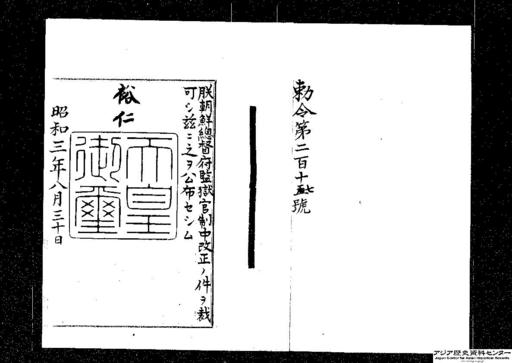 勅令第二百十五號
朕朝鮮總督府監獄官制中改正ノ件ヲ裁
可シ茲ニ之ヲ公布セシム
裕仁
天皇
御璽
昭和三年八月三十日
アジア歴史資料センター
Japan Center for Asian Historical Records